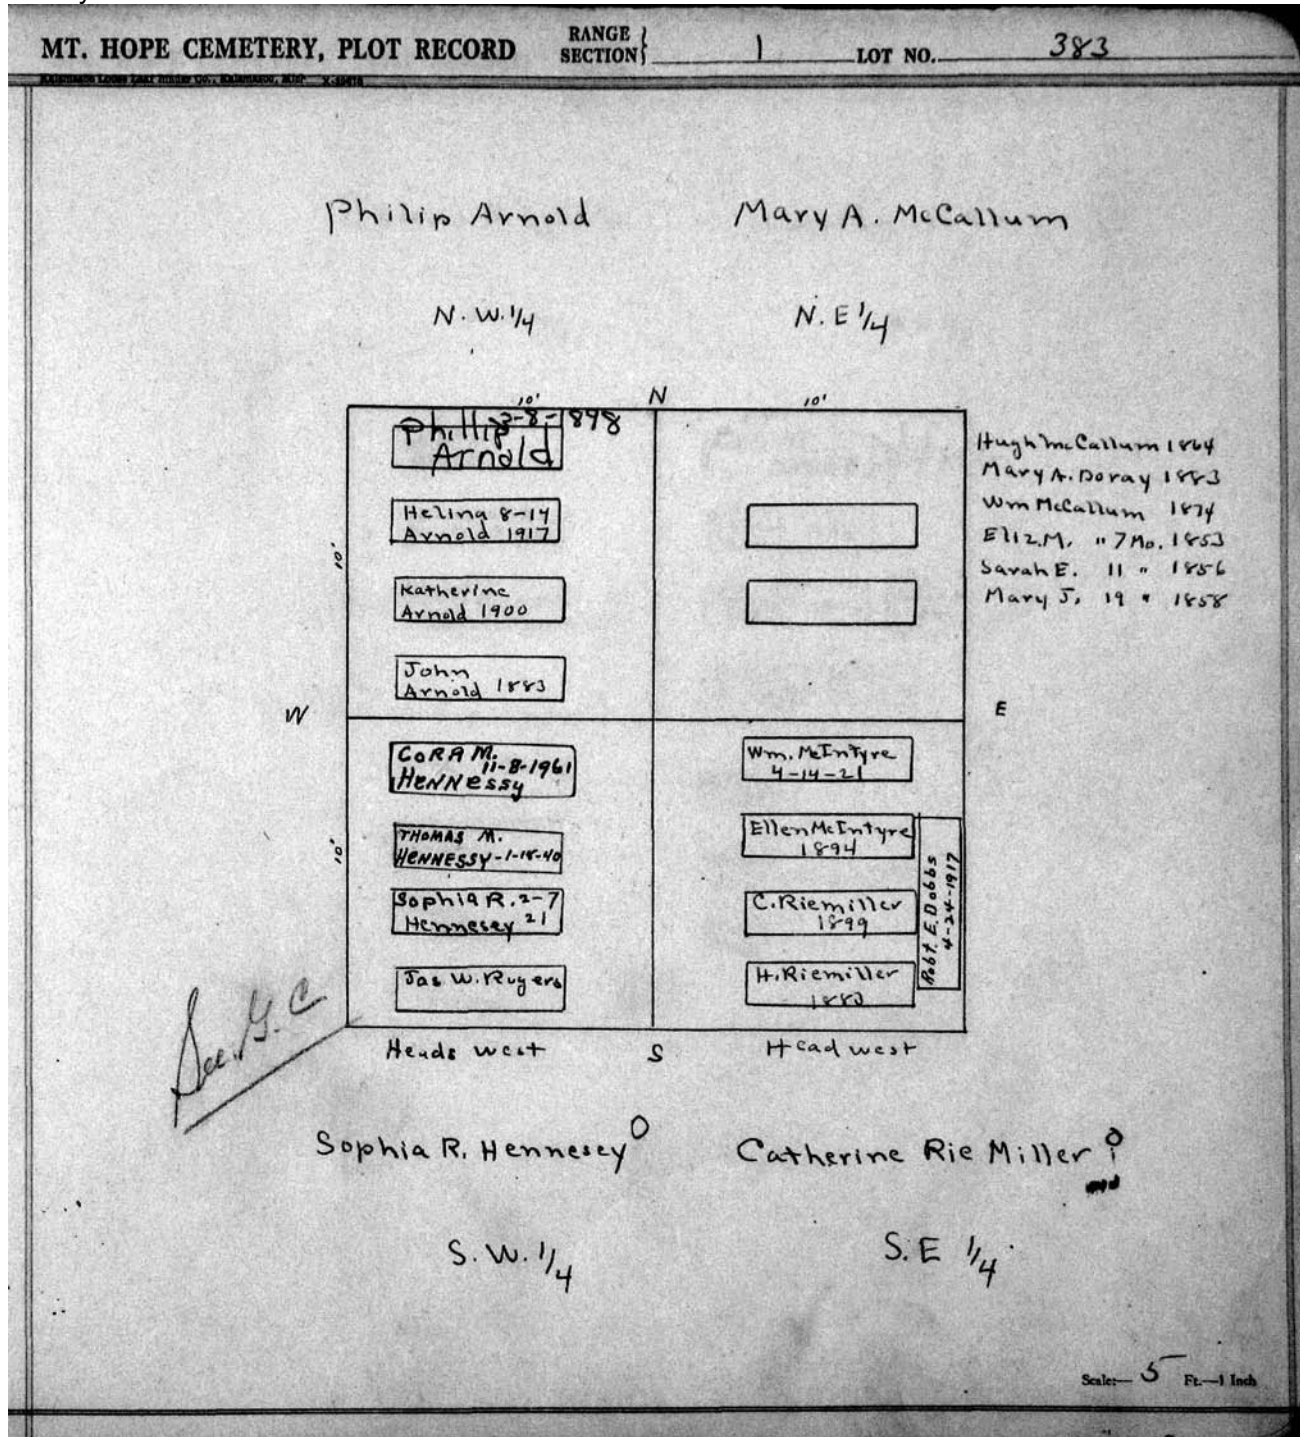 MT. HOPE CEMETERY, PLOT RECORD
RANGE
SECTION
1
LOT NO. 383
Kalamazoo Loose Leaf Binder Co., Kalamazoo, Mich
Philip Arnold
Mary A. McCallum
N. W. 1/4
N. E 1/4
10'
N
10'
Phillip 3-8-1898
Arnold
Helina 8-14
Arnold 1917
Katherine
Arnold 1900
John
Arnold 1883
10'
Hugh McCallum 1864
Mary A. Doray 1883
Wm McCallum 1874
Eliz. M. " 7 Mo. 1853
Sarah E. 11 " 1856
Mary J. 19 " 1858
W
E
CORA M.
11-8-1961
HENNessy
THOMAS M.
HENNESSY-1-18-40
Sophia R. 2-7
Hennesey 21
Jas. W. Rugers
10'
Wm. McIntyre
4-14-21
Ellen McIntyre
1894
C. Riemiller
1899
H. Riemiller
1883
Robt. E. Dobbs
4-24-1917
See. G. C
Heads west
S
Head west
Sophia R. Hennesey
Catherine Rie Miller
S. W. 1/4
S. E 1/4
Scale:— 5 Ft.—1 Inch